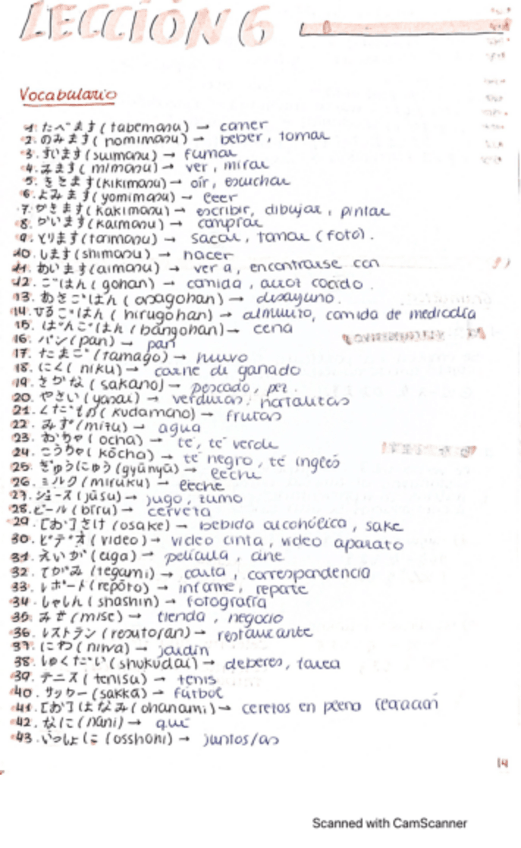 LECCIÓN 6
Vocabulario
1. たべます (tabemasu) → comer
2. のみます (nomimasu) → beber, tomar
3. すいます (suimasu) → fumar
4. みます (mimasu) → ver, mirar
5. ききます (kikimasu) → oír, escuchar
6. よみます (yomimasu) → leer
7. かきます (kakimasu) → escribir, dibujar, pintar
8. かいます (kaimasu) → comprar
9. とります (torimasu) → sacar, tomar (foto).
10. します (shimasu) → hacer
11. あいます (aimasu) → ver a, encontrarse con
12. ごはん (gohan) → comida, arroz cocido.
13. あさごはん (asagohan) → desayuno.
14. ひるごはん (hirugohan) → almuerzo, comida de mediodía
15. ばんごはん (bangohan) → cena
16. パン (pan) → pan
17. たまご (tamago) → huevo
18. にく (niku) → carne de ganado
19. さかな (sakana) → pescado, pez.
20. やさい (yasai) → verduras, hortalizas
21. くだもの (kudamono) → frutas
22. みず (mizu) → agua
23. おちゃ (ocha) → té, té verde
24. こうちゃ (kōcha) → té negro, té inglés
25. ぎゅうにゅう (gyūnyū) → leche
26. ミルク (miruku) → leche
27. ジュース (jūsu) → jugo, zumo
28. ビール (bīru) → cerveza
29. [お]さけ (osake) → bebida alcohólica, sake
30. ビデオ (video) → video cinta, video aparato
31. えいが (eiga) → película, cine
32. てがみ (tegami) → carta, correspondencia
33. レポート (repōto) → informe, reporte
34. しゃしん (shashin) → fotografía
35. みせ (mise) → tienda, negocio
36. レストラン (resutoran) → restaurante
37. にわ (niwa) → jardín
38. しゅくだい (shukudai) → deberes, tarea
39. テニス (tenisu) → tenis
40. サッカー (sakkā) → fútbol
41. [お]はなみ (ohanami) → cerezos en plena floración
42. なに (nani) → qué
43. いっしょに (osshoni) → juntos/as
14
Scanned with CamScanner